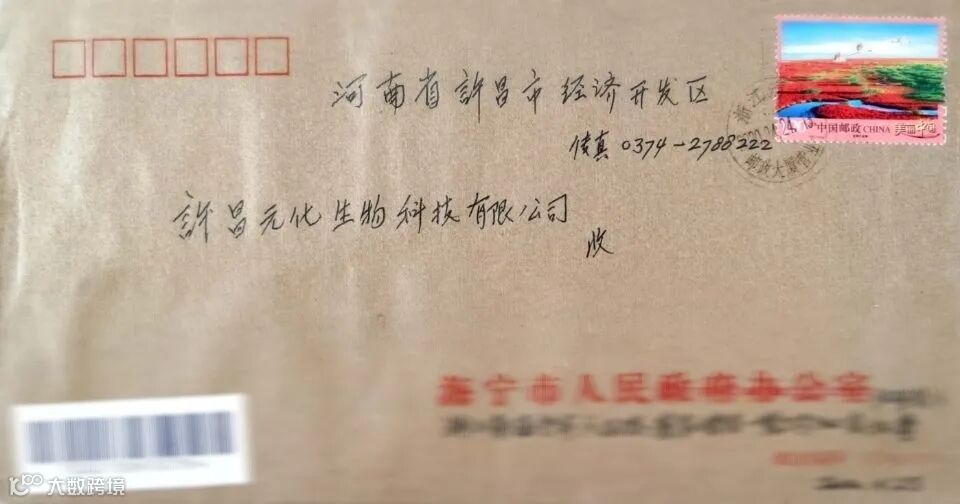 河南省許昌市经济开发区
传真 0374-2788222
中国邮政 CHINA 美丽中国
浙江
邮政大厦营业
許昌元化生物科技有限公司
收
海宁市人民政府办公室
大数跨境